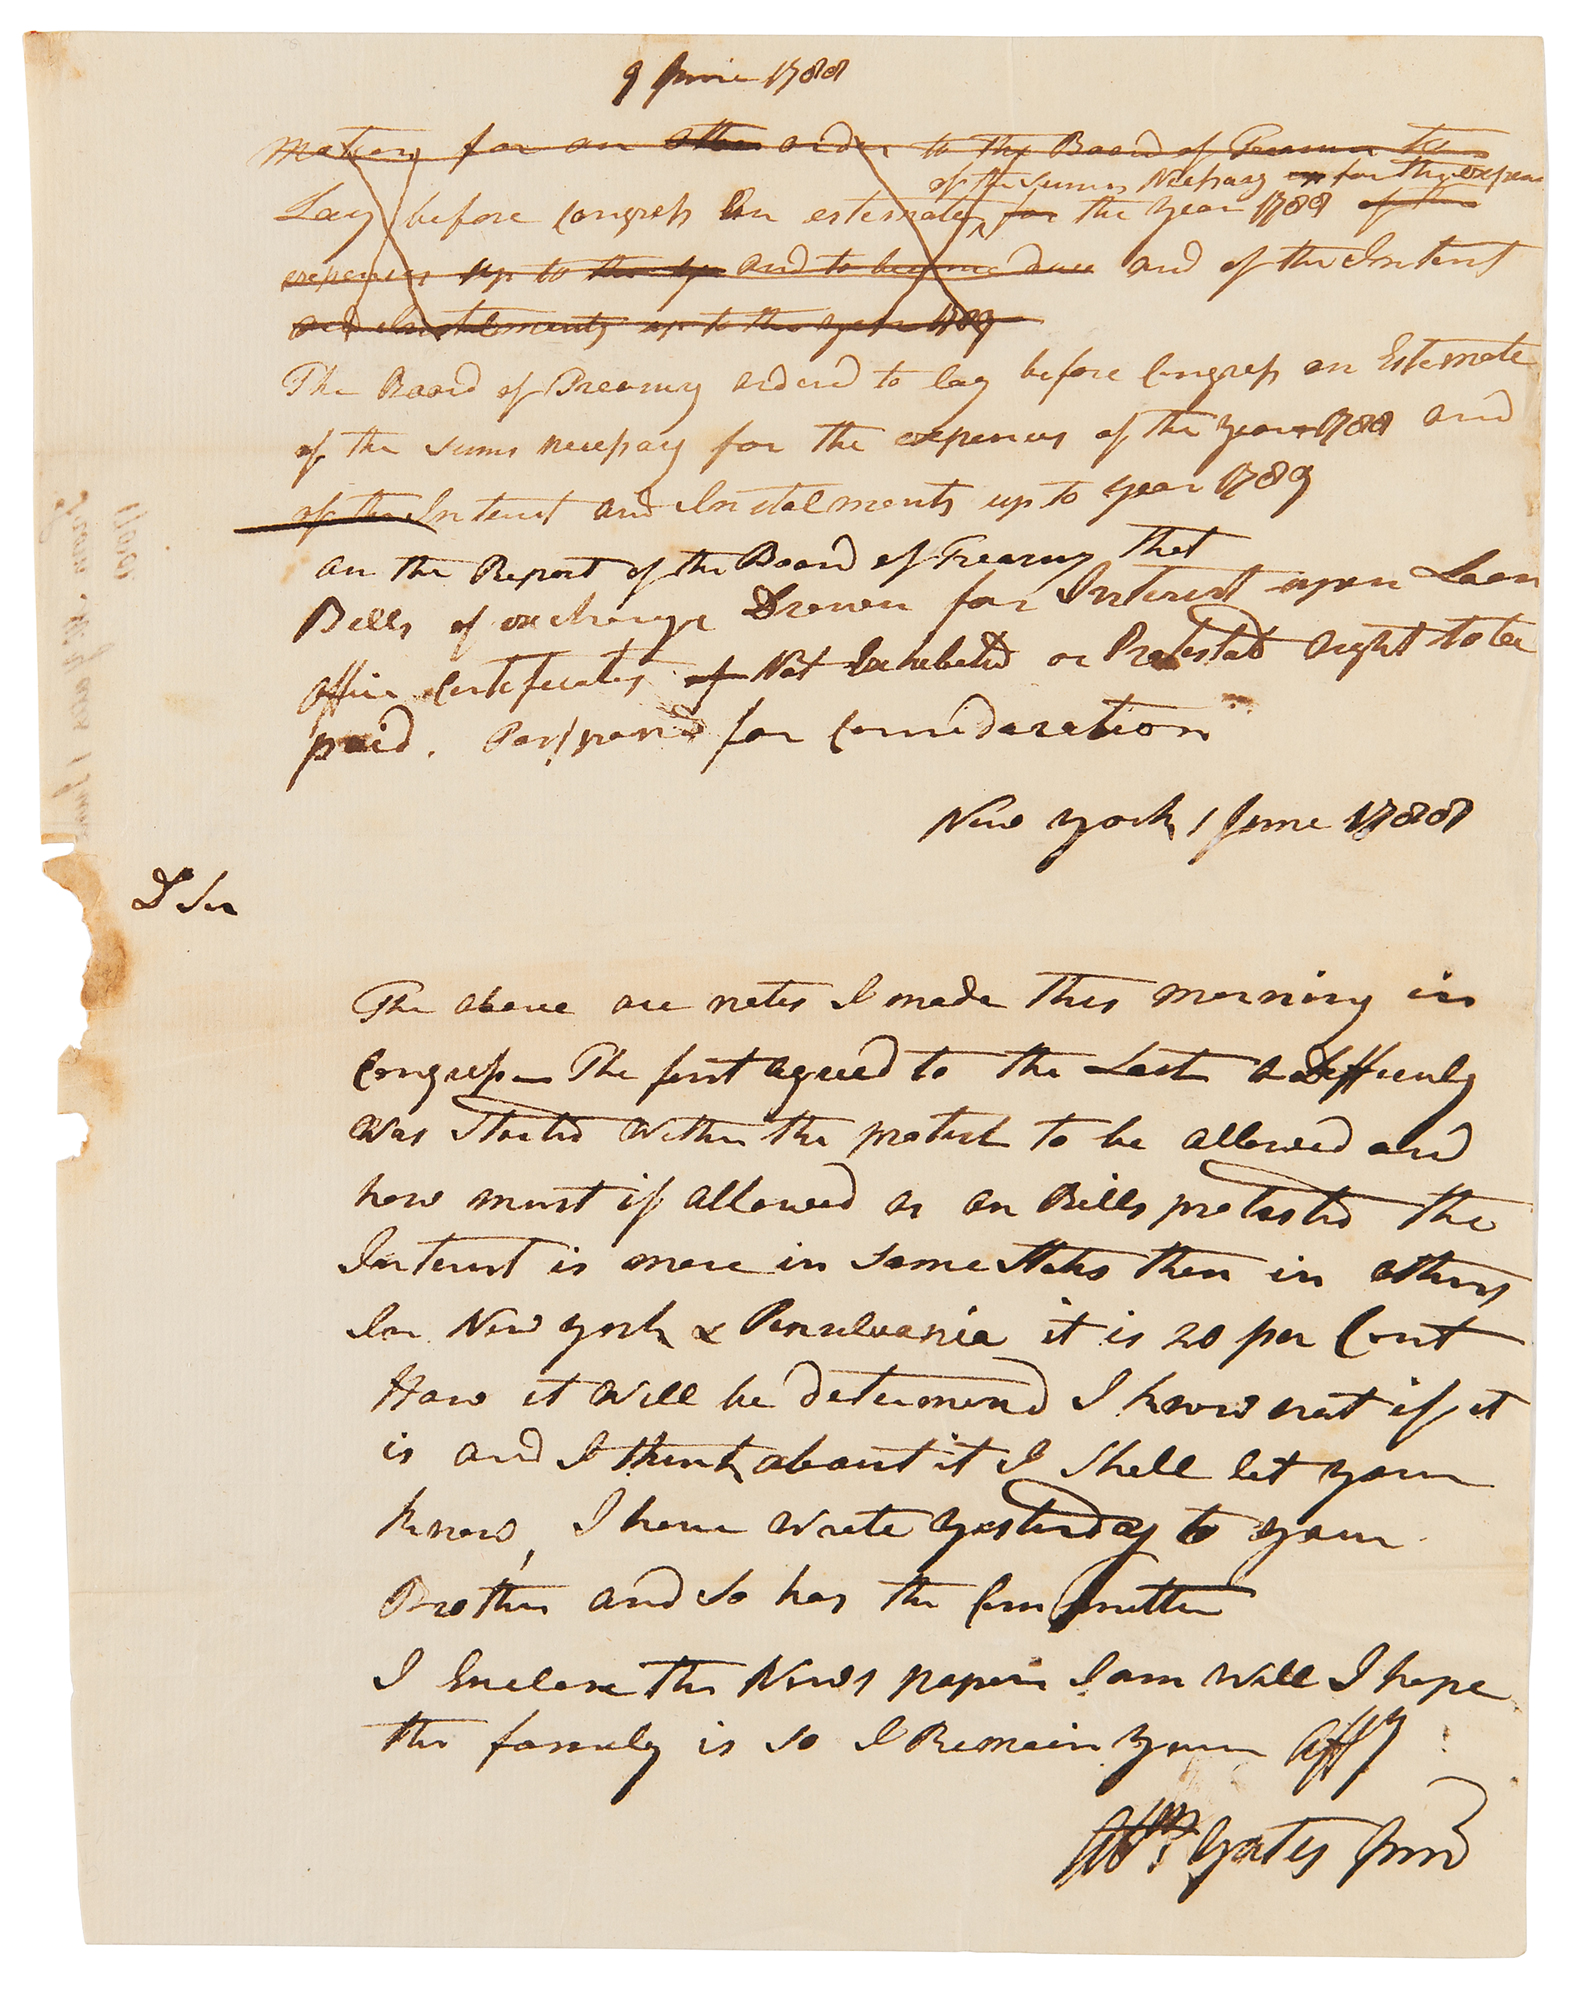 9 June 1788
Motion for an other order to the Board of Treasury to
of the sums Necessary for the expence
Lay before Congress an estemate for the year 1788 of the
expences up to the ye and to become due and of the Interest
and Instalments up to the year 1789
The Board of Treasury ordered to lay before Congress an Estemate
of the sums necessary for the expences of the year 1788 and
of the Interest and Instalments up to year 1789
on the Report of the Board of Treasury that
Bills of exchange Drawn for Interest upon Loan
Office certeficates of Not Exhebeted or Protested ought to be
paid. Postpond for Consideration
New York 1 June 1788
D Sir
The above are notes I made this morning in
Congress The first agreed to the Last a Deffeculy
was Started wether the protest to be allowed and
how must if allowed as on Bills protested the
Interest is more in some States then in others
In New York & Pensilvania it is 20 per Cent
How it will be determend I know not if it
is and I think about it I shall let you
know, I have wrote yesterday to your
Brother and so has the Committee
I Enclose the News paper I am well I hope
the family is so I Remain your Affy
Abm. Yates Junr